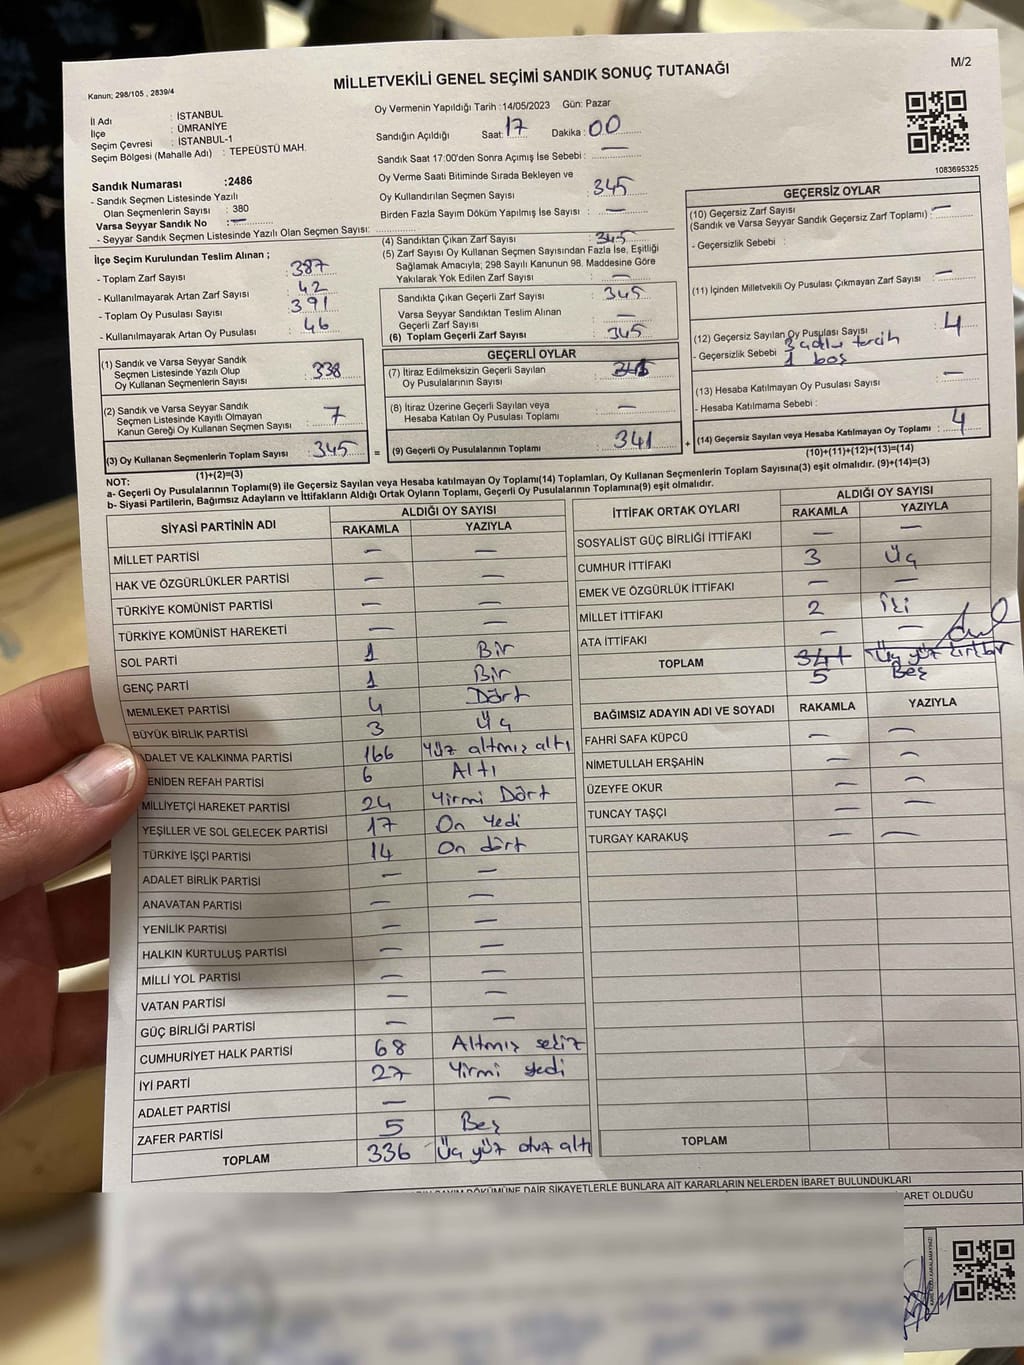 MİLLETVEKİLİ GENEL SEÇİMİ SANDIK SONUÇ TUTANAĞI
M/2
Kanun; 298/105 , 2839/4
İl Adı : İSTANBUL
İlçe : ÜMRANİYE
Seçim Çevresi : İSTANBUL-1
Seçim Bölgesi (Mahalle Adı) : TEPEÜSTÜ MAH.
Sandık Numarası :2486
- Sandık Seçmen Listesinde Yazılı
Olan Seçmenlerin Sayısı : 380
Varsa Seyyar Sandık No : —
- Seyyar Sandık Seçmen Listesinde Yazılı Olan Seçmen Sayısı:
Oy Vermenin Yapıldığı Tarih :14/05/2023 Gün: Pazar
Sandığın Açıldığı Saat: 17 Dakika : 00
Sandık Saat 17:00'den Sonra Açımış İse Sebebi : —
Oy Verme Saati Bitiminde Sırada Bekleyen ve
Oy Kullandırılan Seçmen Sayısı : 345
Birden Fazla Sayım Döküm Yapılmış İse Sayısı : —
1083695325
İlçe Seçim Kurulundan Teslim Alınan ;
- Toplam Zarf Sayısı : 387
- Kullanılmayarak Artan Zarf Sayısı : 42
- Toplam Oy Pusulası Sayısı : 391
- Kullanılmayarak Artan Oy Pusulası : 46
(1) Sandık ve Varsa Seyyar Sandık
Seçmen Listesinde Yazılı Olup
Oy Kullanan Seçmenlerin Sayısı : 338
(2) Sandık ve Varsa Seyyar Sandık
Seçmen Listesinde Kayıtlı Olmayan
Kanun Gereği Oy Kullanan Seçmen Sayısı : 7
(3) Oy Kullanan Seçmenlerin Toplam Sayısı : 345
(1)+(2)=(3)
(4) Sandıktan Çıkan Zarf Sayısı : 345
(5) Zarf Sayısı Oy Kullanan Seçmen Sayısından Fazla İse, Eşitliği
Sağlamak Amacıyla; 298 Sayılı Kanunun 98. Maddesine Göre
Yakılarak Yok Edilen Zarf Sayısı : —
Sandıkta Çıkan Geçerli Zarf Sayısı : 345
Varsa Seyyar Sandıktan Teslim Alınan
Geçerli Zarf Sayısı : —
(6) Toplam Geçerli Zarf Sayısı : 345
GEÇERLİ OYLAR
(7) İtiraz Edilmeksizin Geçerli Sayılan
Oy Pusulalarının Sayısı :
(8) İtiraz Üzerine Geçerli Sayılan veya
Hesaba Katılan Oy Pusulası Toplamı : —
= (9) Geçerli Oy Pusulalarının Toplamı : 341 +
GEÇERSİZ OYLAR
(10) Geçersiz Zarf Sayısı : —
(Sandık ve Varsa Seyyar Sandık Geçersiz Zarf Toplamı)
- Geçersizlik Sebebi :
(11) İçinden Milletvekili Oy Pusulası Çıkmayan Zarf Sayısı : —
(12) Geçersiz Sayılan Oy Pusulası Sayısı : 4
- Geçersizlik Sebebi : 3 tercih
1 boş
(13) Hesaba Katılmayan Oy Pusulası Sayısı : —
- Hesaba Katılmama Sebebi :
(14) Geçersiz Sayılan veya Hesaba Katılmayan Oy Toplamı : 4
(10)+(11)+(12)+(13)=(14)
NOT:
a- Geçerli Oy Pusulalarının Toplamı(9) ile Geçersiz Sayılan veya Hesaba katılmayan Oy Toplamı(14) Toplamları, Oy Kullanan Seçmenlerin Toplam Sayısına(3) eşit olmalıdır. (9)+(14)=(3)
b- Siyasi Partilerin, Bağımsız Adayların ve İttifakların Aldığı Ortak Oyların Toplamı, Geçerli Oy Pusulalarının Toplamına(9) eşit olmalıdır.
SİYASİ PARTİNİN ADI ALDIĞI OY SAYISI
RAKAMLA YAZIYLA
MİLLET PARTİSİ — —
HAK VE ÖZGÜRLÜKLER PARTİSİ — —
TÜRKİYE KOMÜNİST PARTİSİ — —
TÜRKİYE KOMÜNİST HAREKETİ — —
SOL PARTİ 1 Bir
GENÇ PARTİ 1 Bir
MEMLEKET PARTİSİ 4 Dört
BÜYÜK BİRLİK PARTİSİ 3 Üç
ADALET VE KALKINMA PARTİSİ 166 Yüz altmış altı
YENİDEN REFAH PARTİSİ 6 Altı
MİLLİYETÇİ HAREKET PARTİSİ 24 Yirmi Dört
YEŞİLLER VE SOL GELECEK PARTİSİ 17 On Yedi
TÜRKİYE İŞÇİ PARTİSİ 14 On dört
ADALET BİRLİK PARTİSİ — —
ANAVATAN PARTİSİ — —
YENİLİK PARTİSİ — —
HALKIN KURTULUŞ PARTİSİ — —
MİLLİ YOL PARTİSİ — —
VATAN PARTİSİ — —
GÜÇ BİRLİĞİ PARTİSİ — —
CUMHURİYET HALK PARTİSİ 68 Altmış sekiz
İYİ PARTİ 27 Yirmi yedi
ADALET PARTİSİ — —
ZAFER PARTİSİ 5 Beş
TOPLAM 336 Üç yüz otuz altı
İTTİFAK ORTAK OYLARI ALDIĞI OY SAYISI
RAKAMLA YAZIYLA
SOSYALİST GÜÇ BİRLİĞİ İTTİFAKI — —
CUMHUR İTTİFAKI 3 Üç
EMEK VE ÖZGÜRLÜK İTTİFAKI — —
MİLLET İTTİFAKI 2 İki
ATA İTTİFAKI — —
TOPLAM 341 Üç yüz kırk bir
5 Beş
BAĞIMSIZ ADAYIN ADI VE SOYADI RAKAMLA YAZIYLA
FAHRİ SAFA KÜPCÜ — —
NİMETULLAH ERŞAHİN — —
ÜZEYFE OKUR — —
TUNCAY TAŞÇI — —
TURGAY KARAKUŞ — —
TOPLAM
DÖKÜMÜNE DAİR ŞİKAYETLERLE BUNLARA AİT KARARLARIN NELERDEN İBARET BULUNDUKLARI
OLDUĞU